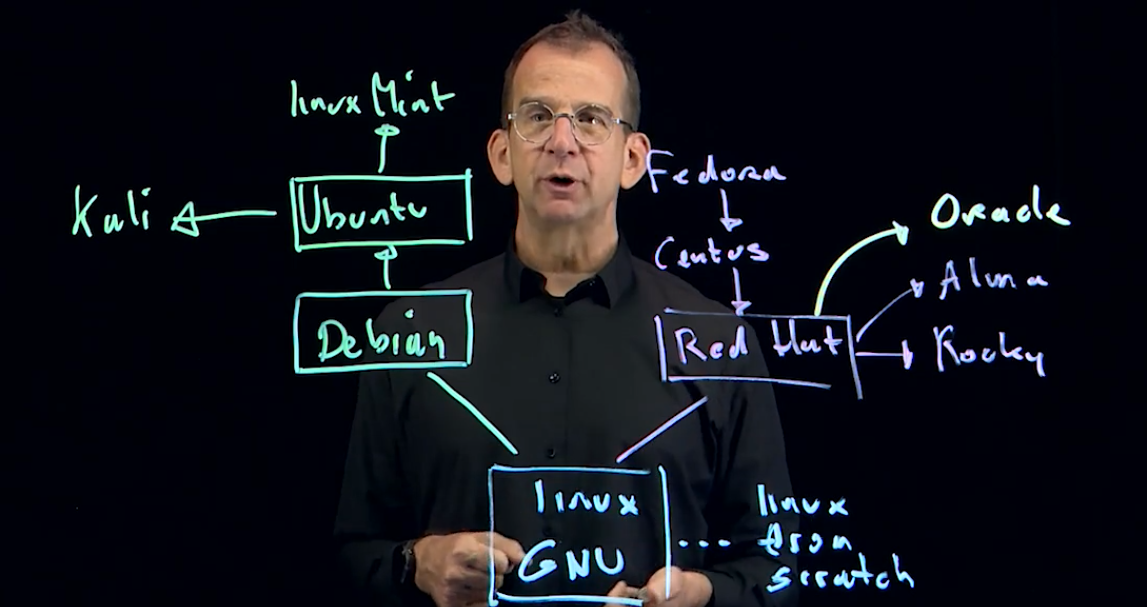 linux Mint
Kali
Ubuntu
Debian
Fedora
Centos
Red Hat
Oracle
Alma
Rocky
linux
GNU
...
linux
from
scratch